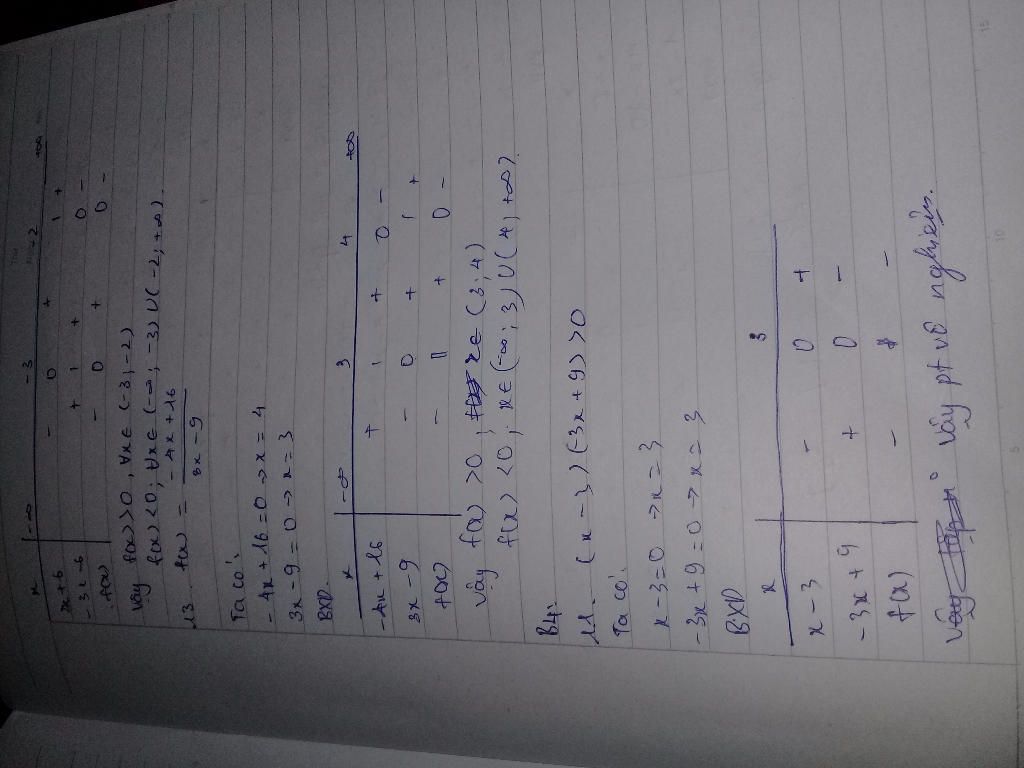 x -∞ -3 -2 +∞
2x+6 - 0 + | +
-3x-6 + | + 0 -
f(x) - 0 + 0 -
Vậy f(x)>0, ∀x∈(-3;-2)
f(x)<0; ∀x∈(-∞;-3)∪(-2;+∞).
13. f(x) = -4x+16 / 3x-9
Ta có:
-4x+16=0→x=4
3x-9=0→x=3
BXD.
x -∞ 3 4 +∞
-4x+16 + | + 0 -
3x-9 - 0 + | +
f(x) - || + 0 -
Vậy f(x)>0; x∈(3;4)
f(x)<0; x∈(-∞;3)∪(4;+∞).
B4:
11. (x-3)(-3x+9)>0
Ta có:
x-3=0→x=3
-3x+9=0→x=3
BXD
x 3
x-3 - 0 +
-3x+9 + 0 -
f(x) - -
Vậy pt vô nghiệm.